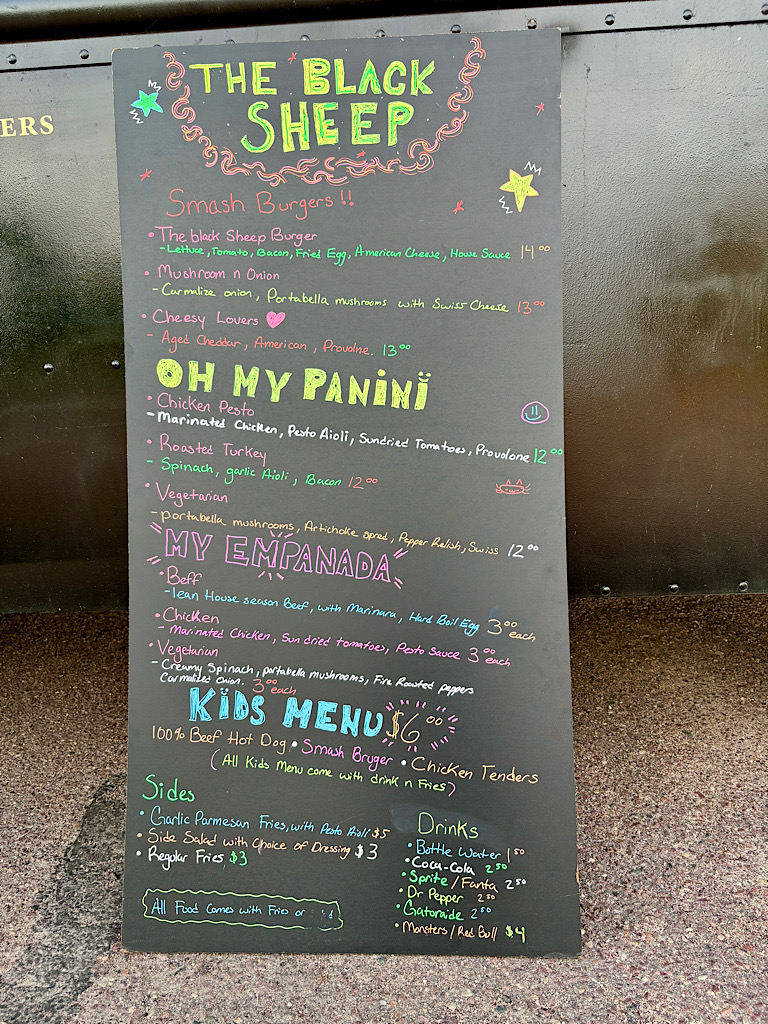 ERS
THE BLACK
SHEEP
Smash Burgers!!
• The black Sheep Burger
- Lettuce, Tomato, Bacon, Fried Egg, American Cheese, House Sauce 14⁰⁰
• Mushroom n Onion
- Carmalize onion, Portabella mushrooms with Swiss Cheese 13⁰⁰
• Cheesy Lovers
- Aged Cheddar, American, Provolne. 13⁰⁰
OH MY PANINI
• Chicken Pesto
- Marinated Chicken, Pesto Aioli, Sundried Tomatoes, Provolone 12⁰⁰
• Roasted Turkey
- Spinach, garlic Aioli, Bacon 12⁰⁰
• Vegetarian
- portabella mushrooms, Artichoke spred, Pepper Relish, Swiss 12⁰⁰
MY EMPANADA
• Beff
- lean House season Beef, with Marinara, Hard Boil Egg 3⁰⁰ each
• Chicken
- Marinated Chicken, Sun dried tomatoes, Pesto Sauce 3⁰⁰ each
• Vegetarian
- Creamy Spinach, portabella mushrooms, Fire Roasted peppers
Carmalized Onion. 3⁰⁰ each
KiDS MENU $6⁰⁰
100% Beef Hot Dog • Smash Bruger • Chicken Tenders
(All Kids Menu come with drink n Fries)
Sides
• Garlic Parmesan Fries, with Pesto Aioli $5
• Side Salad with Choice of Dressing $3
• Regular Fries $3
All Food Comes with Fries or
Drinks
• Bottle Water 1⁵⁰
• Coca-Cola 2⁵⁰
• Sprite / Fanta 2⁵⁰
• Dr Pepper 2⁵⁰
• Gatoraide 2⁵⁰
• Monsters / Red Bull $4